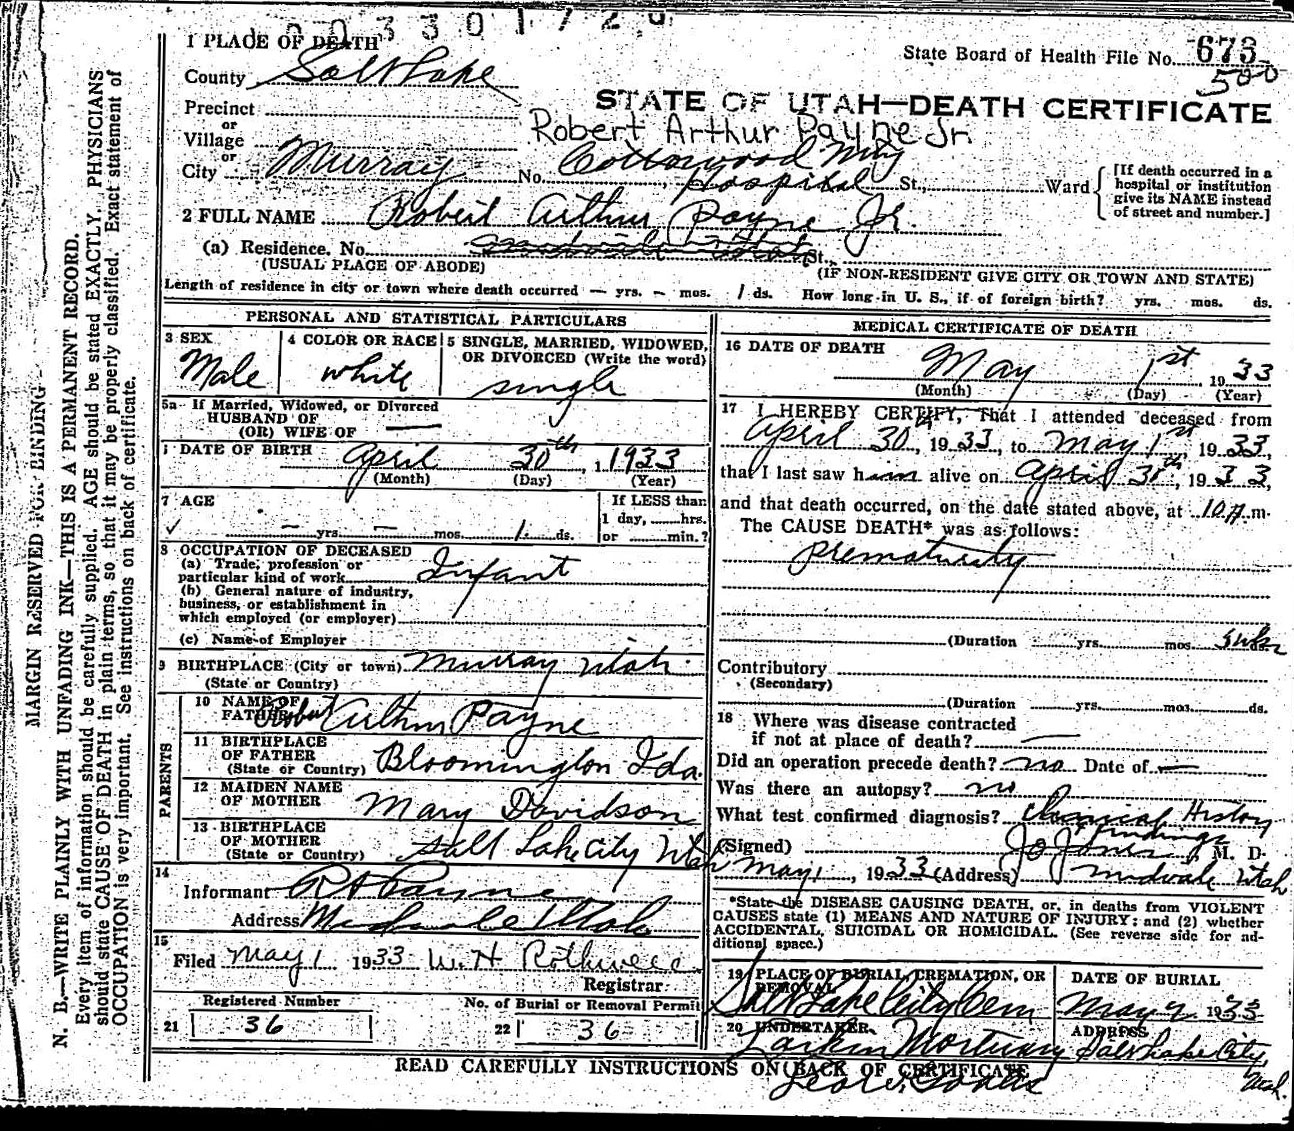 003301720
1 PLACE OF DEATH
State Board of Health File No. 673
500
County Salt Lake
STATE OF UTAH—DEATH CERTIFICATE
Precinct
or
Robert Arthur Payne Jr.
Village
or
City Murray No. Cottonwood Hospital St., Ward
[If death occurred in a
hospital or institution
give its NAME instead
of street and number.]
2 FULL NAME Robert Arthur Payne Jr.
(a) Residence. No. St.,
(USUAL PLACE OF ABODE) (IF NON-RESIDENT GIVE CITY OR TOWN AND STATE)
Length of residence in city or town where death occurred — yrs. – mos. 1 ds. How long in U. S., if of foreign birth? yrs. mos. ds.
PERSONAL AND STATISTICAL PARTICULARS
3 SEX
Male
4 COLOR OR RACE
white
5 SINGLE, MARRIED, WIDOWED,
OR DIVORCED (Write the word)
single
5a If Married, Widowed, or Divorced
HUSBAND OF
(OR) WIFE OF —
DATE OF BIRTH April 30th, 1933
(Month) (Day) (Year)
7 AGE
— yrs. — mos. 1 ds.
If LESS than
1 day, hrs.
or min.?
8 OCCUPATION OF DECEASED
(a) Trade, profession or
particular kind of work Infant
(b) General nature of industry,
business, or establishment in
which employed (or employer)
(c) Name of Employer
9 BIRTHPLACE (City or town) Murray Utah
(State or Country)
PARENTS
10 NAME OF
FATHER Robert Arthur Payne
11 BIRTHPLACE
OF FATHER
(State or Country) Bloomington Ida.
12 MAIDEN NAME
OF MOTHER Mary Davidson
13 BIRTHPLACE
OF MOTHER
(State or Country) Salt Lake City Utah
14
Informant R A Payne
Address Midvale Utah
15
Filed May 1 1933 W. H. Rothwell
Registrar
Registered Number
21 36
No. of Burial or Removal Permit
22 36
MEDICAL CERTIFICATE OF DEATH
16 DATE OF DEATH
May 1st, 1933
(Month) (Day) (Year)
17 I HEREBY CERTIFY, That I attended deceased from
April 30th, 1933, to May 1st, 1933,
that I last saw him alive on April 30th, 1933,
and that death occurred, on the date stated above, at 10 A.m.
The CAUSE DEATH* was as follows:
prematurity
(Duration yrs. mos.
Contributory
(Secondary)
(Duration yrs. mos. ds.
18 Where was disease contracted
if not at place of death? —
Did an operation precede death? no Date of —
Was there an autopsy? no
What test confirmed diagnosis? History
findings
(Signed) Jones, M. D.
May 1, 1933 (Address) Midvale Utah
*State the DISEASE CAUSING DEATH, or, in deaths from VIOLENT
CAUSES state (1) MEANS AND NATURE OF INJURY; and (2) whether
ACCIDENTAL, SUICIDAL OR HOMICIDAL. (See reverse side for ad-
ditional space.)
19 PLACE OF BURIAL, CREMATION, OR
REMOVAL
Salt Lake City Cem
DATE OF BURIAL
May 2 1933
20 UNDERTAKER
Larkin Mortuary
ADDRESS
Salt Lake City,
Utah.
READ CAREFULLY INSTRUCTIONS ON BACK OF CERTIFICATE
MARGIN RESERVED FOR BINDING
N. B.—WRITE PLAINLY WITH UNFADING INK—THIS IS A PERMANENT RECORD.
Every item of information should be carefully supplied. AGE should be stated EXACTLY. PHYSICIANS
should state CAUSE OF DEATH in plain terms, so that it may be properly classified. Exact statement of
OCCUPATION is very important. See instructions on back of certificate.